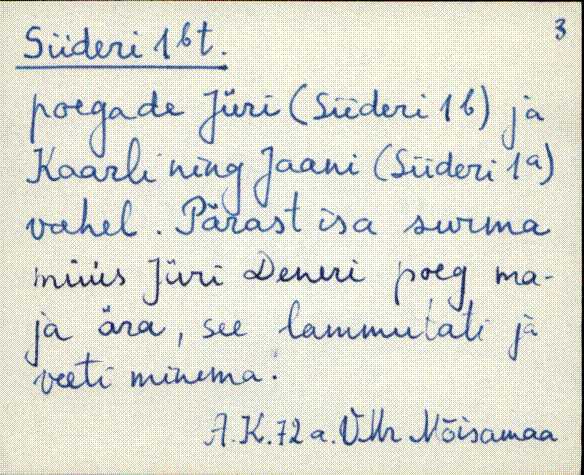 3
Süderi 1bt.
poegade Jüri (Süderi 1b) ja
Kaarli ning Jaani (Süderi 1a)
vahel. Pärast isa surma
müüs Jüri Deneri poeg ma-
ja ära, see lammutati ja
veeti minema.
A.K. 72 a. VMr Mõisamaa